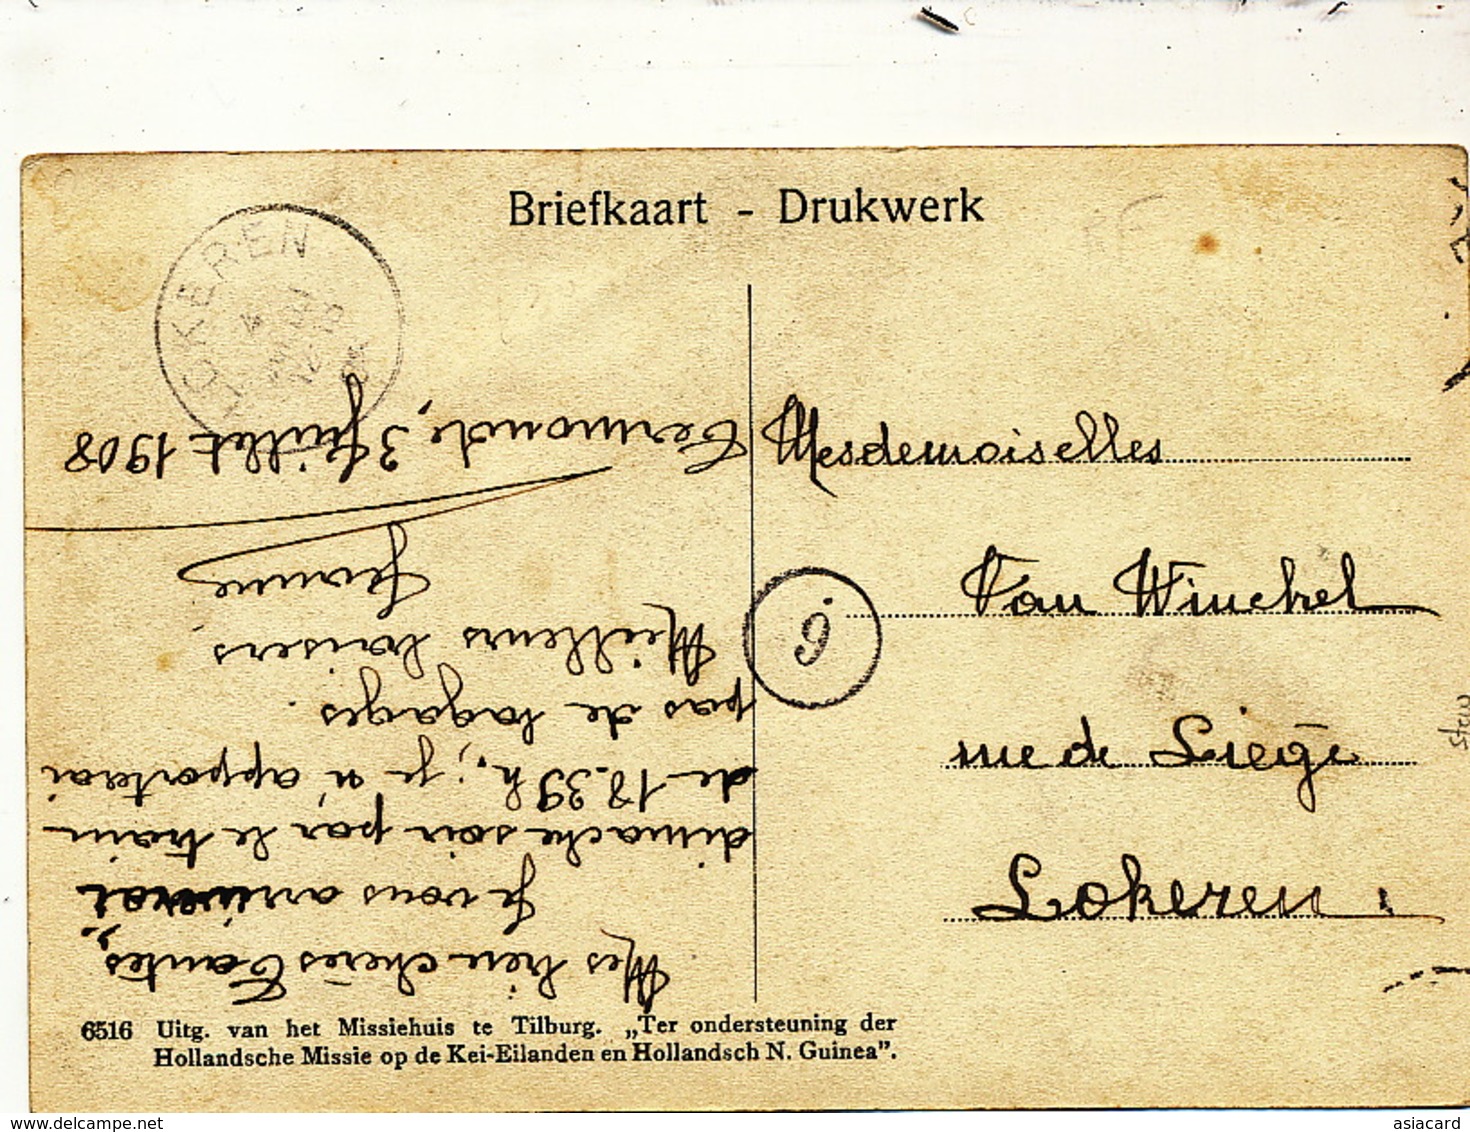 Briefkaart - Drukwerk
LOKEREN
Mesdemoiselles
Van Winckel
rue de Liège
Lokeren
9
Mes bien chères Tantes,
Je vous arriverai
dimache soir par le train
de 18.39 h.; je n'apporterai
pas de bagages.
Meilleurs baisers.
Jeanne
Termonde, 3 Juillet 1908
6516 Uitg. van het Missiehuis te Tilburg. „Ter ondersteuning der
Hollandsche Missie op de Kei-Eilanden en Hollandsch N. Guinea”.
asiacard